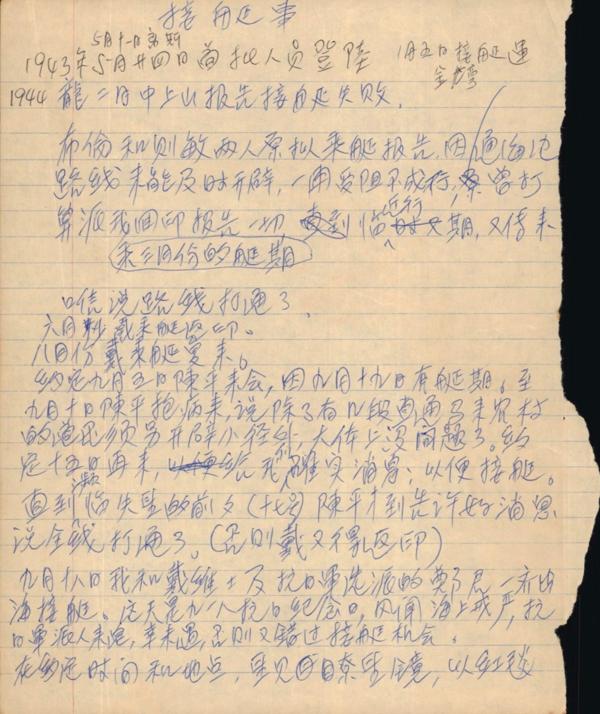 接艇事
5月十一日 启
1943年5月廿四日首批人员登陸 1月五日接艇運
1944 龍二月中上山报告接艇失败.
布偷和则敏两人原拟乘艇报告,因通海边
路线未能及时开辟,一再受阻不成行,曾打
算派我回印报告一切,直到临近行期,又傳来
乘三月份的艇期
口信说路线打通了
六月 戴乘艇返印。
八月份戴乘艇复来。
约定九月五日陳平来会,因九月十九日有艇期。至
九月十日陳平抱病来,说除了有几段直通马来农村
的道路须另开辟小径外,大体上没问题了。约
定十五日再来,给我的確实消息,以便接艇。
直到濒临失望的前夕(十七号)陳平才到告诉好消息
说全线打通了。(否则戴又得返印)
九月十八日我和戴維士及抗日軍选派的鄭君一齐出
海接艇。这天是九一八抗日纪念日,风闻海上戒严,抗
日軍派人来追,幸未遇,否则又错过接艇机会。
在约定时间和地点,望见回目潦望镜,以红毯